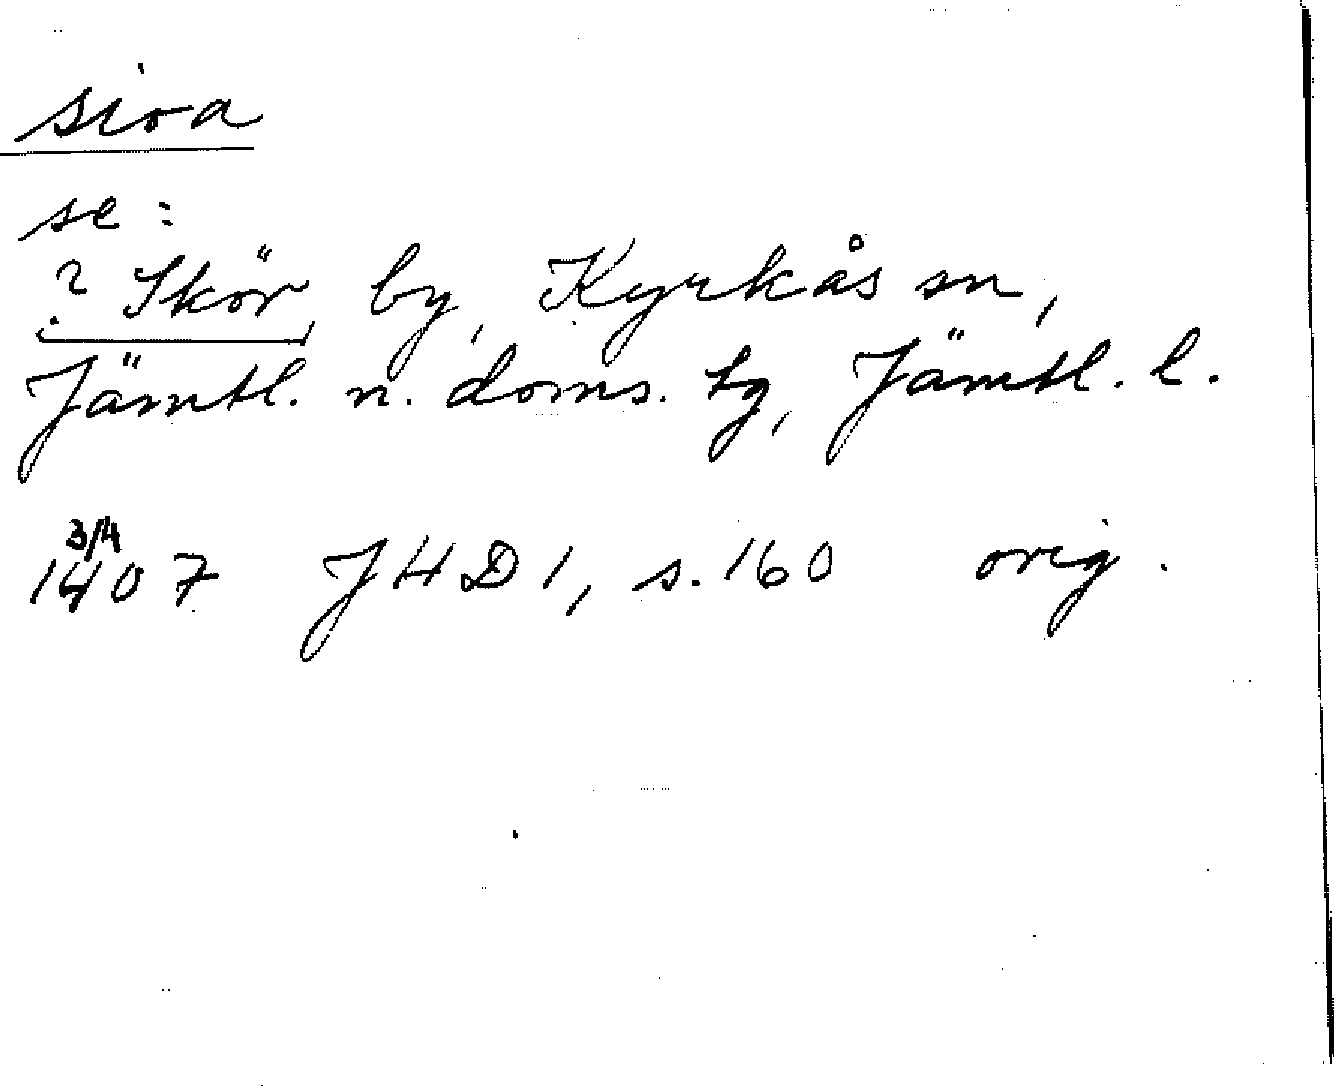 sioa
se:
? Skör, by, Kyrkås sn,
Jämtl. n. doms. tg, Jämtl. l.
3/4
1407 JHD1, s. 160 orig.